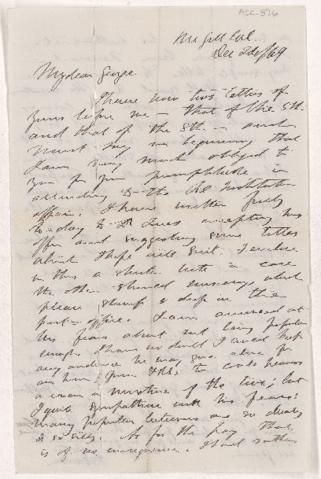 McGill Col.
Dec 22d/69
My dear George
I have now two letters of
yours before me — that of the 5th
and that of the 8th — and
must say in beginning that
I am very much obliged to
you for your promptitude in
attending to the Rl Institution
affair. I have written fully
to day to accepting his
offer and suggesting some titles
which I hope will suit. I enclose
in this a shorter note in case
the other should miscarry which
please stamp & drop in the
post-office. I am amused at
his fears about not being popular
enough. I have no doubt I could keep
any audience he may give alive for
an hour, from to coal heavers
or even a mixture of the two; but
I quite sympathise with his fears:
many popular lecturers are so
& so silly. As for the pay that
is of no consequence. I had rather